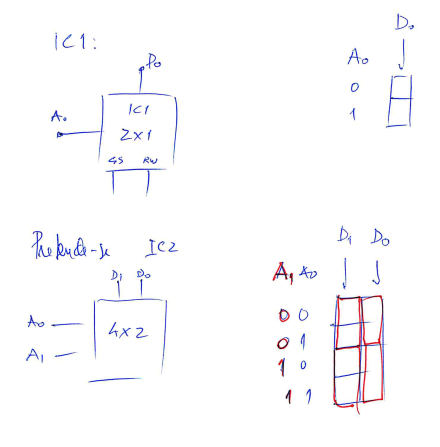 IC1:
D₀
A₀
IC1
2x1
CS RW
D₀
A₀
0
1
Pretende-se IC2
D₁ D₀
A₀
A₁
4x2
D₁ D₀
A₁ A₀
0 0
0 1
1 0
1 1